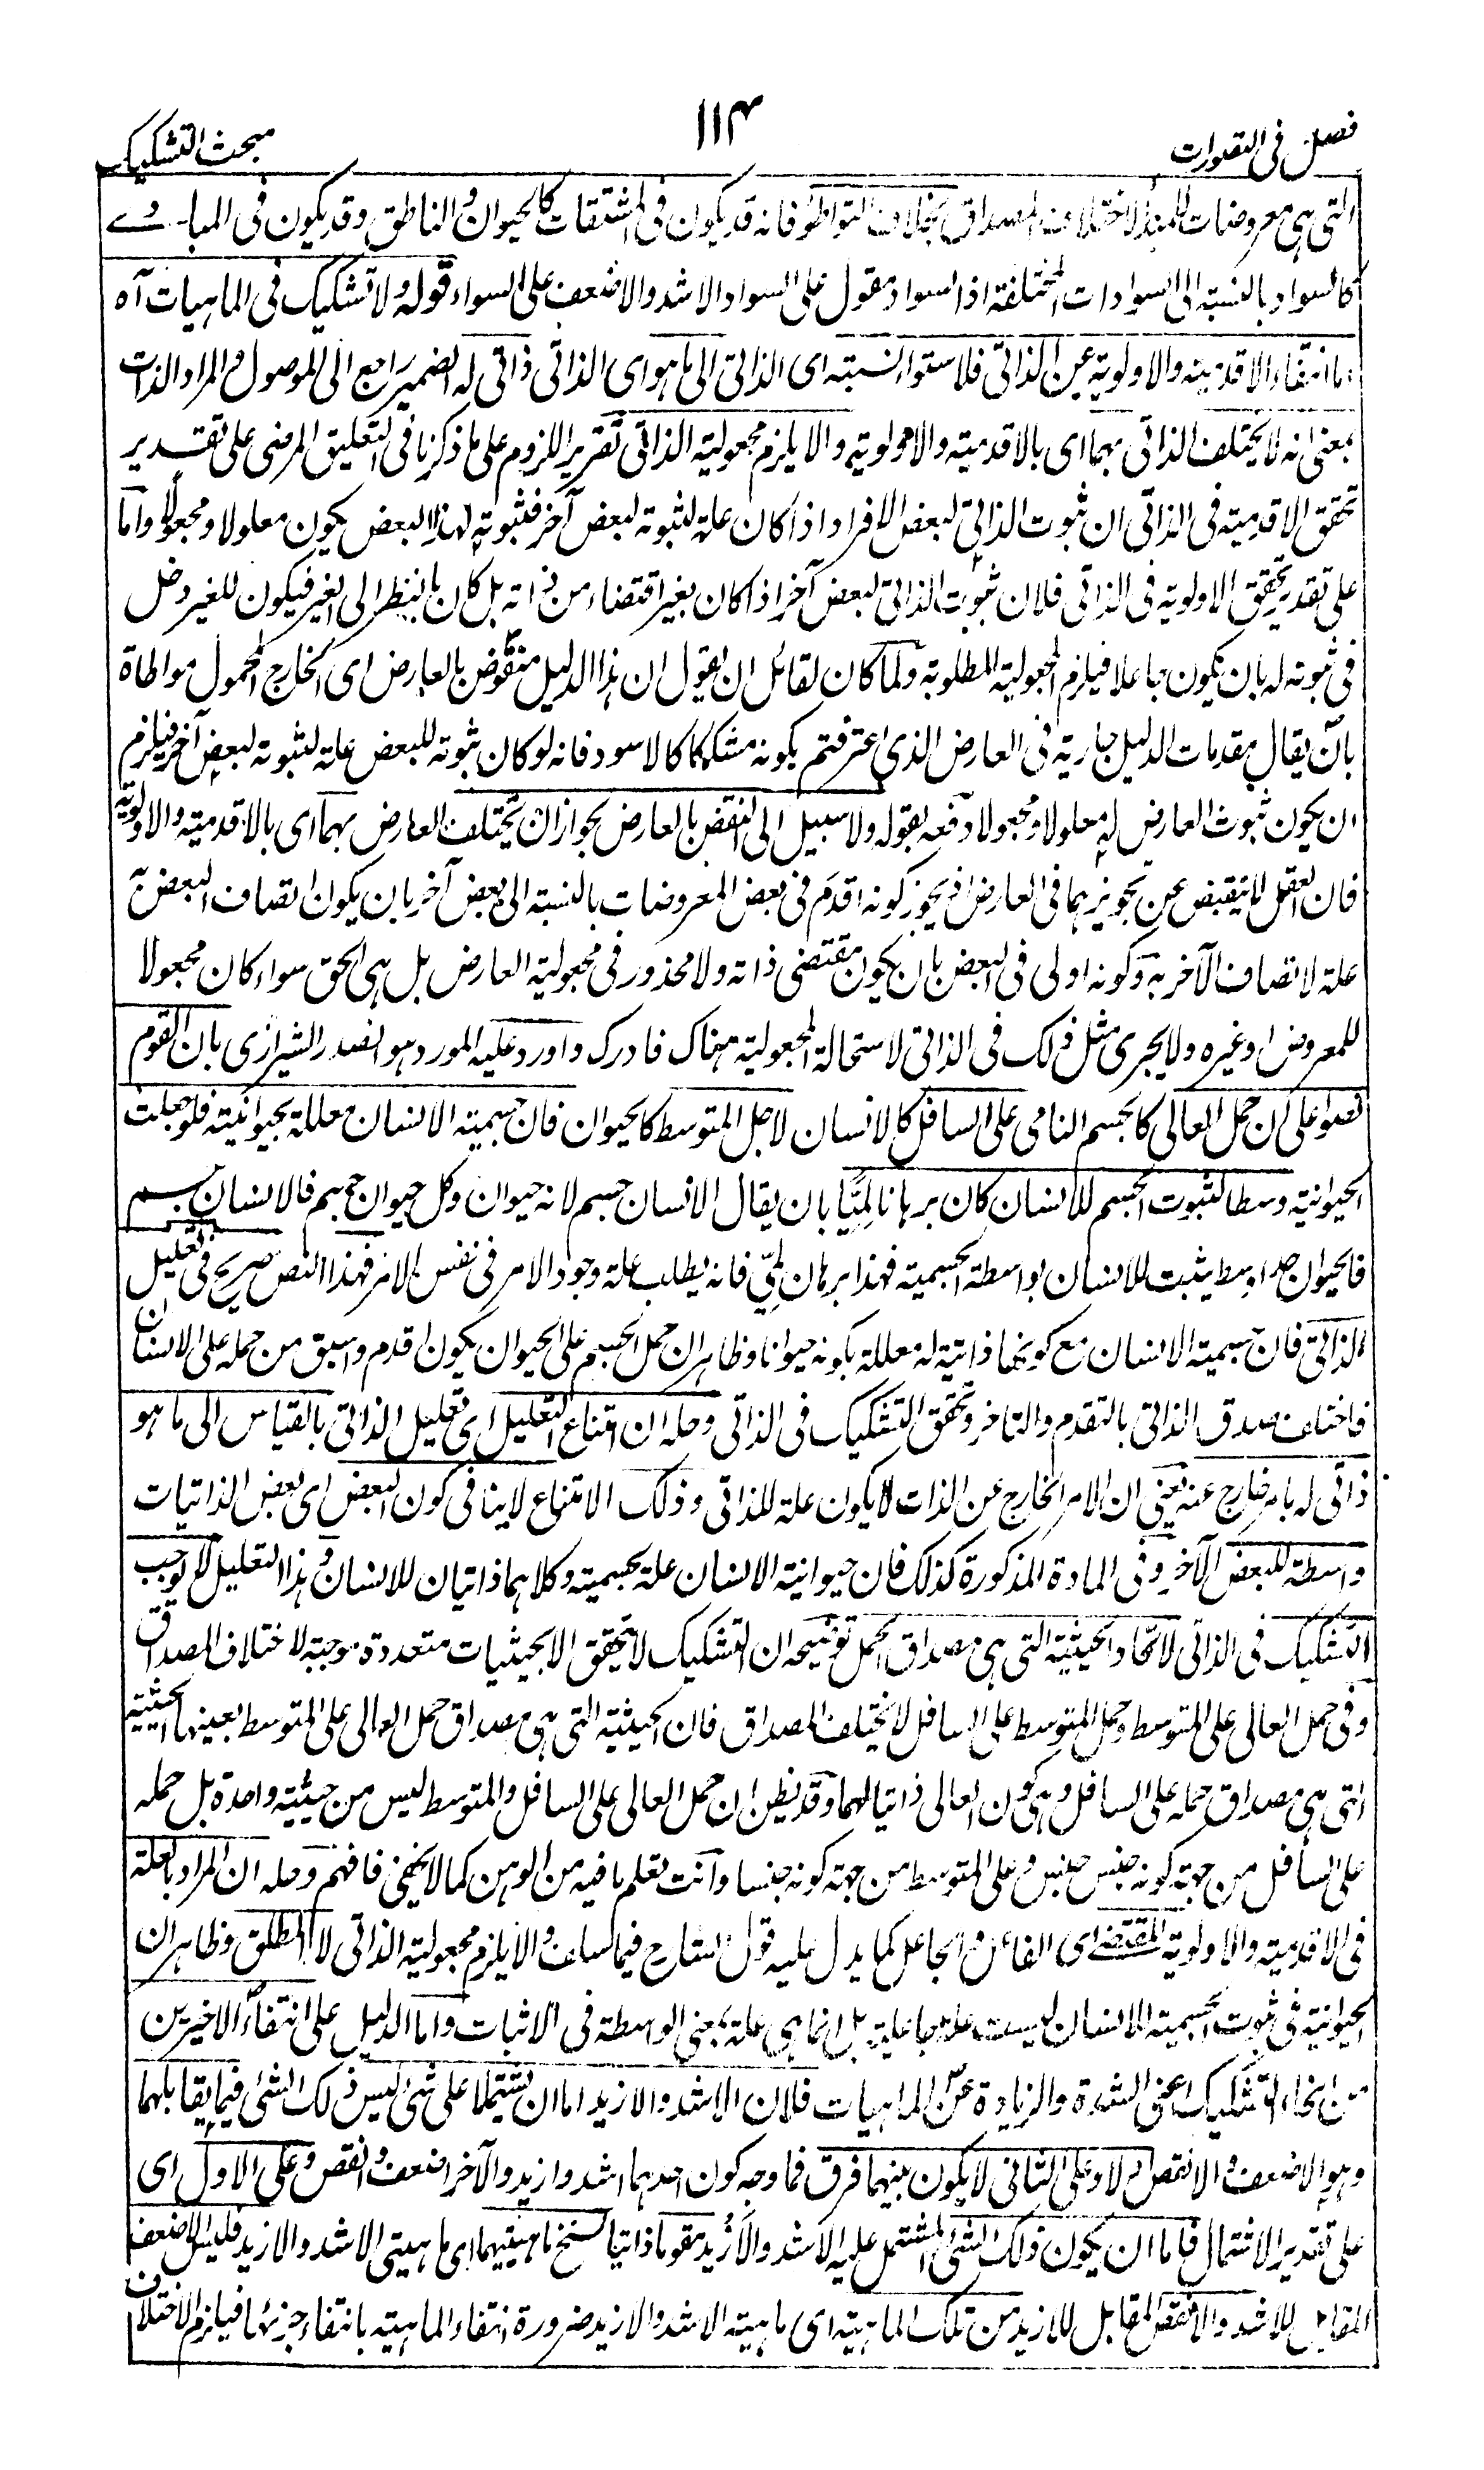 فصل فى التصورات
١١٤
مبحث التشكيك
التى هى معروضات للمبدأ لاختلاف المصداق بخلاف التواطؤ فانه قد يكون فى المشتقات كالحيوان والناطق وقد يكون فى المبادے
كالسواد بالنسبة الى السوادات المختلفة اذ السواد مقول على السواد الاشد والاضعف على السواء قوله ولا تشكيك فى الماهيات آه
اما انتفاء الاقدمية والاولوية عن الذاتى فلاستواء نسبته اى الذاتى الى ما هو اى الذاتى ذاتى له الضمير راجع الى الموصول والمراد الذات
بمعنى انه لا يختلف الذاتى بهما اى بالاقدمية والاولوية والا يلزم مجعولية الذاتى تقرير اللزوم على ما ذكرنا فى التعليق المرضى على تقدير
تحقق الاقدمية فى الذاتى ان ثبوت الذاتى لبعض الافراد اذا كان علة لثبوته لبعض آخر فثبوته لهذا البعض يكون معلولا ومجعولا واما
على تقدير تحقق الاولوية فى الذاتى فلان ثبوت الذاتى لبعض آخر اذا كان بغير اقتضاء من ذاته بل كان بالنظر الى الغير فيكون للغير دخل
فى ثبوته له بان يكون جاعلا فيلزم المجعولية المطلوبة ولما كان لقائل ان يقول ان هذا الدليل منقوض بالعارض اى الخارج المحمول مواطاة
بان يقال مقدمات الدليل جارية فى العارض الذى اعترفتم بكونه مشككا كالاسود فانه لو كان ثبوته للبعض علة لثبوته لبعض آخر فيلزم
ان يكون ثبوت العارض له معلولا ومجعولا دفعه بقوله ولا سبيل الى النقض بالعارض لجواز ان يختلف العارض بهما اى بالاقدمية والاولوية
فان العقل لا ينقبض عن تجويزهما فى العارض اذ يجوز كونه اقدم فى بعض المعروضات بالنسبة الى بعض آخر بان يكون اتصاف البعض به
علة لاتصاف الآخر به وكونه اولى فى البعض بان يكون مقتضى ذاته ولا محذور فى مجعولية العارض بل هى الحق سواء كان مجعولا
للمعروض او غيره ولا يجرى مثل ذلك فى الذاتى لاستحالة المجعولية هناك فادرك واورد عليه المورد هو الصدر الشيرازى بان القوم
نصوا على ان حمل العالى كالجسم النامى على السافل كالانسان لاجل المتوسط كالحيوان فان جسمية الانسان معللة بحيوانيته فلو جعلت
الحيوانية وسطا لثبوت الجسم للانسان كان برهانا لميًّا بان يقال الانسان جسم لانه حيوان وكل حيوان جسم فالانسان جسم
فالحيوان حد اوسط يثبت للانسان بواسطة الجسمية فهذا برهان لمىّ فانه يطلب علة وجود الامر فى نفس الامر فهذا النص صريح فى تعليل
الذاتى فان جسمية الانسان مع كونها ذاتية له معللة بكونه حيوانا وظاهر ان حمل الجسم على الحيوان يكون اقدم واسبق من حمله على الانسان
فاختلف صدق الذاتى بالتقدم والتاخر وتحقق التشكيك فى الذاتى وحله ان امتناع التعليل اى تعليل الذاتى بالقياس الى ما هو
ذاتى له بامر خارج عنه يعنى ان الامر الخارج عن الذات لا يكون علة للذاتى وذلك الامتناع لا ينافى كون البعض اى بعض الذاتيات
واسطة للبعض الآخر وفى المادة المذكورة كذلك فان حيوانية الانسان علة لجسميته وكلاهما ذاتيان للانسان وهذا التعليل لا يوجب
التشكيك فى الذاتى لاتحاد الحيثية التى هى مصداق الحمل توضيحه ان التشكيك لا يتحقق الا بحيثيات متعددة موجبة لاختلاف المصداق
وفى حمل العالى على المتوسط وحمل المتوسط على السافل لا يختلف المصداق فان الحيثية التى هى مصداق حمل العالى على المتوسط بعينها الحيثية
التى هى مصداق حمله على السافل وهى كون العالى ذاتيا لهما وقد يظن ان حمل العالى على السافل والمتوسط ليس من حيثية واحدة بل حمله
على السافل من جهة كونه جنس جنس وعلى المتوسط من جهة كونه جنسا وانت تعلم ما فيه من الوهن كما لا يخفى فافهم وحله ان المراد بالعلة
فى الاقدمية والاولوية المقتضى اى الفاعل والجاعل كما يدل عليه قول الشارح فيما سلف والا يلزم مجعولية الذاتى لا المطلق وظاهر ان
الحيوانية فى ثبوت الجسمية للانسان ليست علة جاعلية بل انما هى علة بمعنى الواسطة فى الاثبات واما الدليل على انتفاء الاخيرين
من انحاء التشكيك اعنى الشدة والزيادة عن الماهيات فلان الاشد والازيد اما ان يشتملا على شئ ليس ذلك الشئ فيما يقابلهما
وهو الاضعف والانقص او لا وعلى الثانى لا يكون بينهما فرق فما وجه كون احدهما اشد وازيد والآخر اضعف وانقص وعلى الاول اى
على تقدير الاشتمال فاما ان يكون ذلك الشئ المشتمل عليه الاشد والازيد مقوما ذاتيا لسنخ ماهيتهما اى ماهيتى الاشد والازيد فليس الاضعف
المقابل للاشد والانقص المقابل للازيد من تلك الماهية اى ماهية الاشد والازيد ضرورة انتفاء الماهية بانتفاء جزئها فيلزم الاختلاف